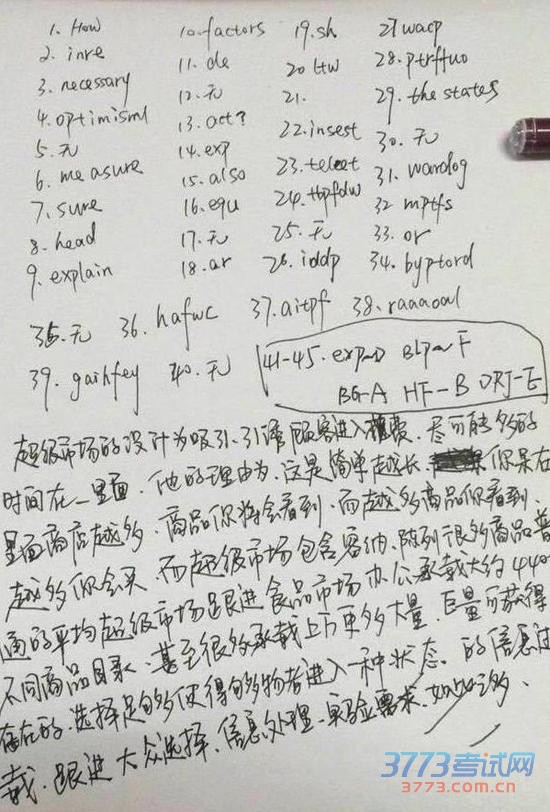 1. How 10. factors 19. sh 27 wacp
2. inre 11. de 20 ttw 28. ptrffuo
3. necessary 12. 无 21. 29. the states
4. optimisml 13. act? 22. insest 30. 无
5. 无 14. exp 23. teleet 31. wardog
6. measure 15. also 24. tbpfdw 32 mptfs
7. sure 16. equ 25. 无 33. or
8. head 17. 无 26. iddp 34. byptord
9. explain 18. ar
35. 无 36. hafwc 37. aitpf 38. raaaoal
39. gaihfey 40. 无 41-45. exp-D BLP-F
BG-A HF-B DRJ-E
超级市场的设计为吸引、引诱顾客进入 尽可能多的
时间在一里面. 他的理由为. 这是简单越长 你呆在
里面商店越多. 商品你将会看到. 而越多商品你看到.
越多你会买. 而超级市场包含容纳. 陈列很多商品普
通的平均超级市场跟进食品市场办公承载大约440
不同商品目录. 甚至很多承载上万更多大量. 巨量可获得
存在的. 选择足够使得购物者进入一种状态. 的信息过
载. 跟进大众选择. 信息处理. 实验需求. 如此之多.
3773考试网
www.3773.com.cn